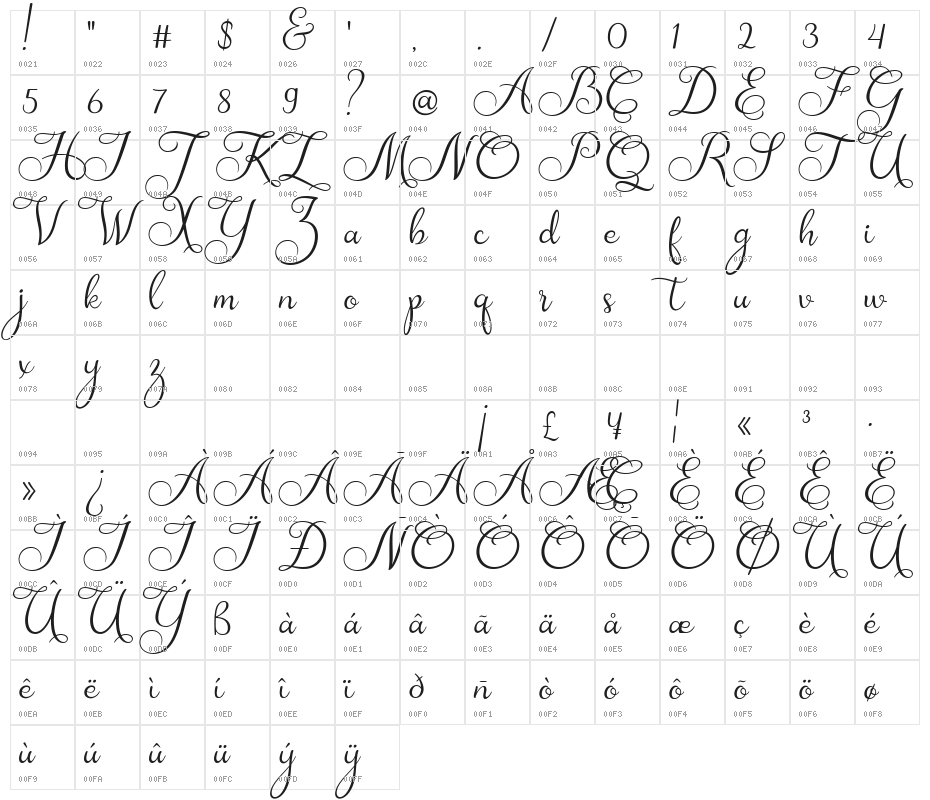 ! " # $ & ' , . / 0 1 2 3 4
0021 0022 0023 0024 0026 0027 002C 002E 002F 0030 0031 0032 0033 0034
5 6 7 8 9 ? @ A B C D E F G
0035 0036 0037 0038 0039 003F 0040 0041 0042 0043 0044 0045 0046 0047
H I J K L M N O P Q R S T U
0048 0049 004A 004B 004C 004D 004E 004F 0050 0051 0052 0053 0054 0055
V W X Y Z a b c d e f g h i
0056 0057 0058 0059 005A 0061 0062 0063 0064 0065 0066 0067 0068 0069
j k l m n o p q r s t u v w
006A 006B 006C 006D 006E 006F 0070 0071 0072 0073 0074 0075 0076 0077
x y z
0078 0079 007A 0080 0082 0084 0085 008A 008B 008C 008E 0091 0092 0093
¡ £ ¥ ¦ « ³ ·
0094 0095 009A 009B 009C 009E 009F 00A1 00A3 00A5 00A6 00AB 00B3 00B7
» ¿ À Á Â Ã Ä Å Æ Ç È É Ê Ë
00BB 00BF 00C0 00C1 00C2 00C3 00C4 00C5 00C6 00C7 00C8 00C9 00CA 00CB
Ì Í Î Ï Ð Ñ Ò Ó Ô Õ Ö Ø Ù Ú
00CC 00CD 00CE 00CF 00D0 00D1 00D2 00D3 00D4 00D5 00D6 00D8 00D9 00DA
Û Ü Ý ß à á â ã ä å æ ç è é
00DB 00DC 00DD 00DF 00E0 00E1 00E2 00E3 00E4 00E5 00E6 00E7 00E8 00E9
ê ë ì í î ï ð ñ ò ó ô õ ö ø
00EA 00EB 00EC 00ED 00EE 00EF 00F0 00F1 00F2 00F3 00F4 00F5 00F6 00F8
ù ú û ü ý ÿ
00F9 00FA 00FB 00FC 00FD 00FF